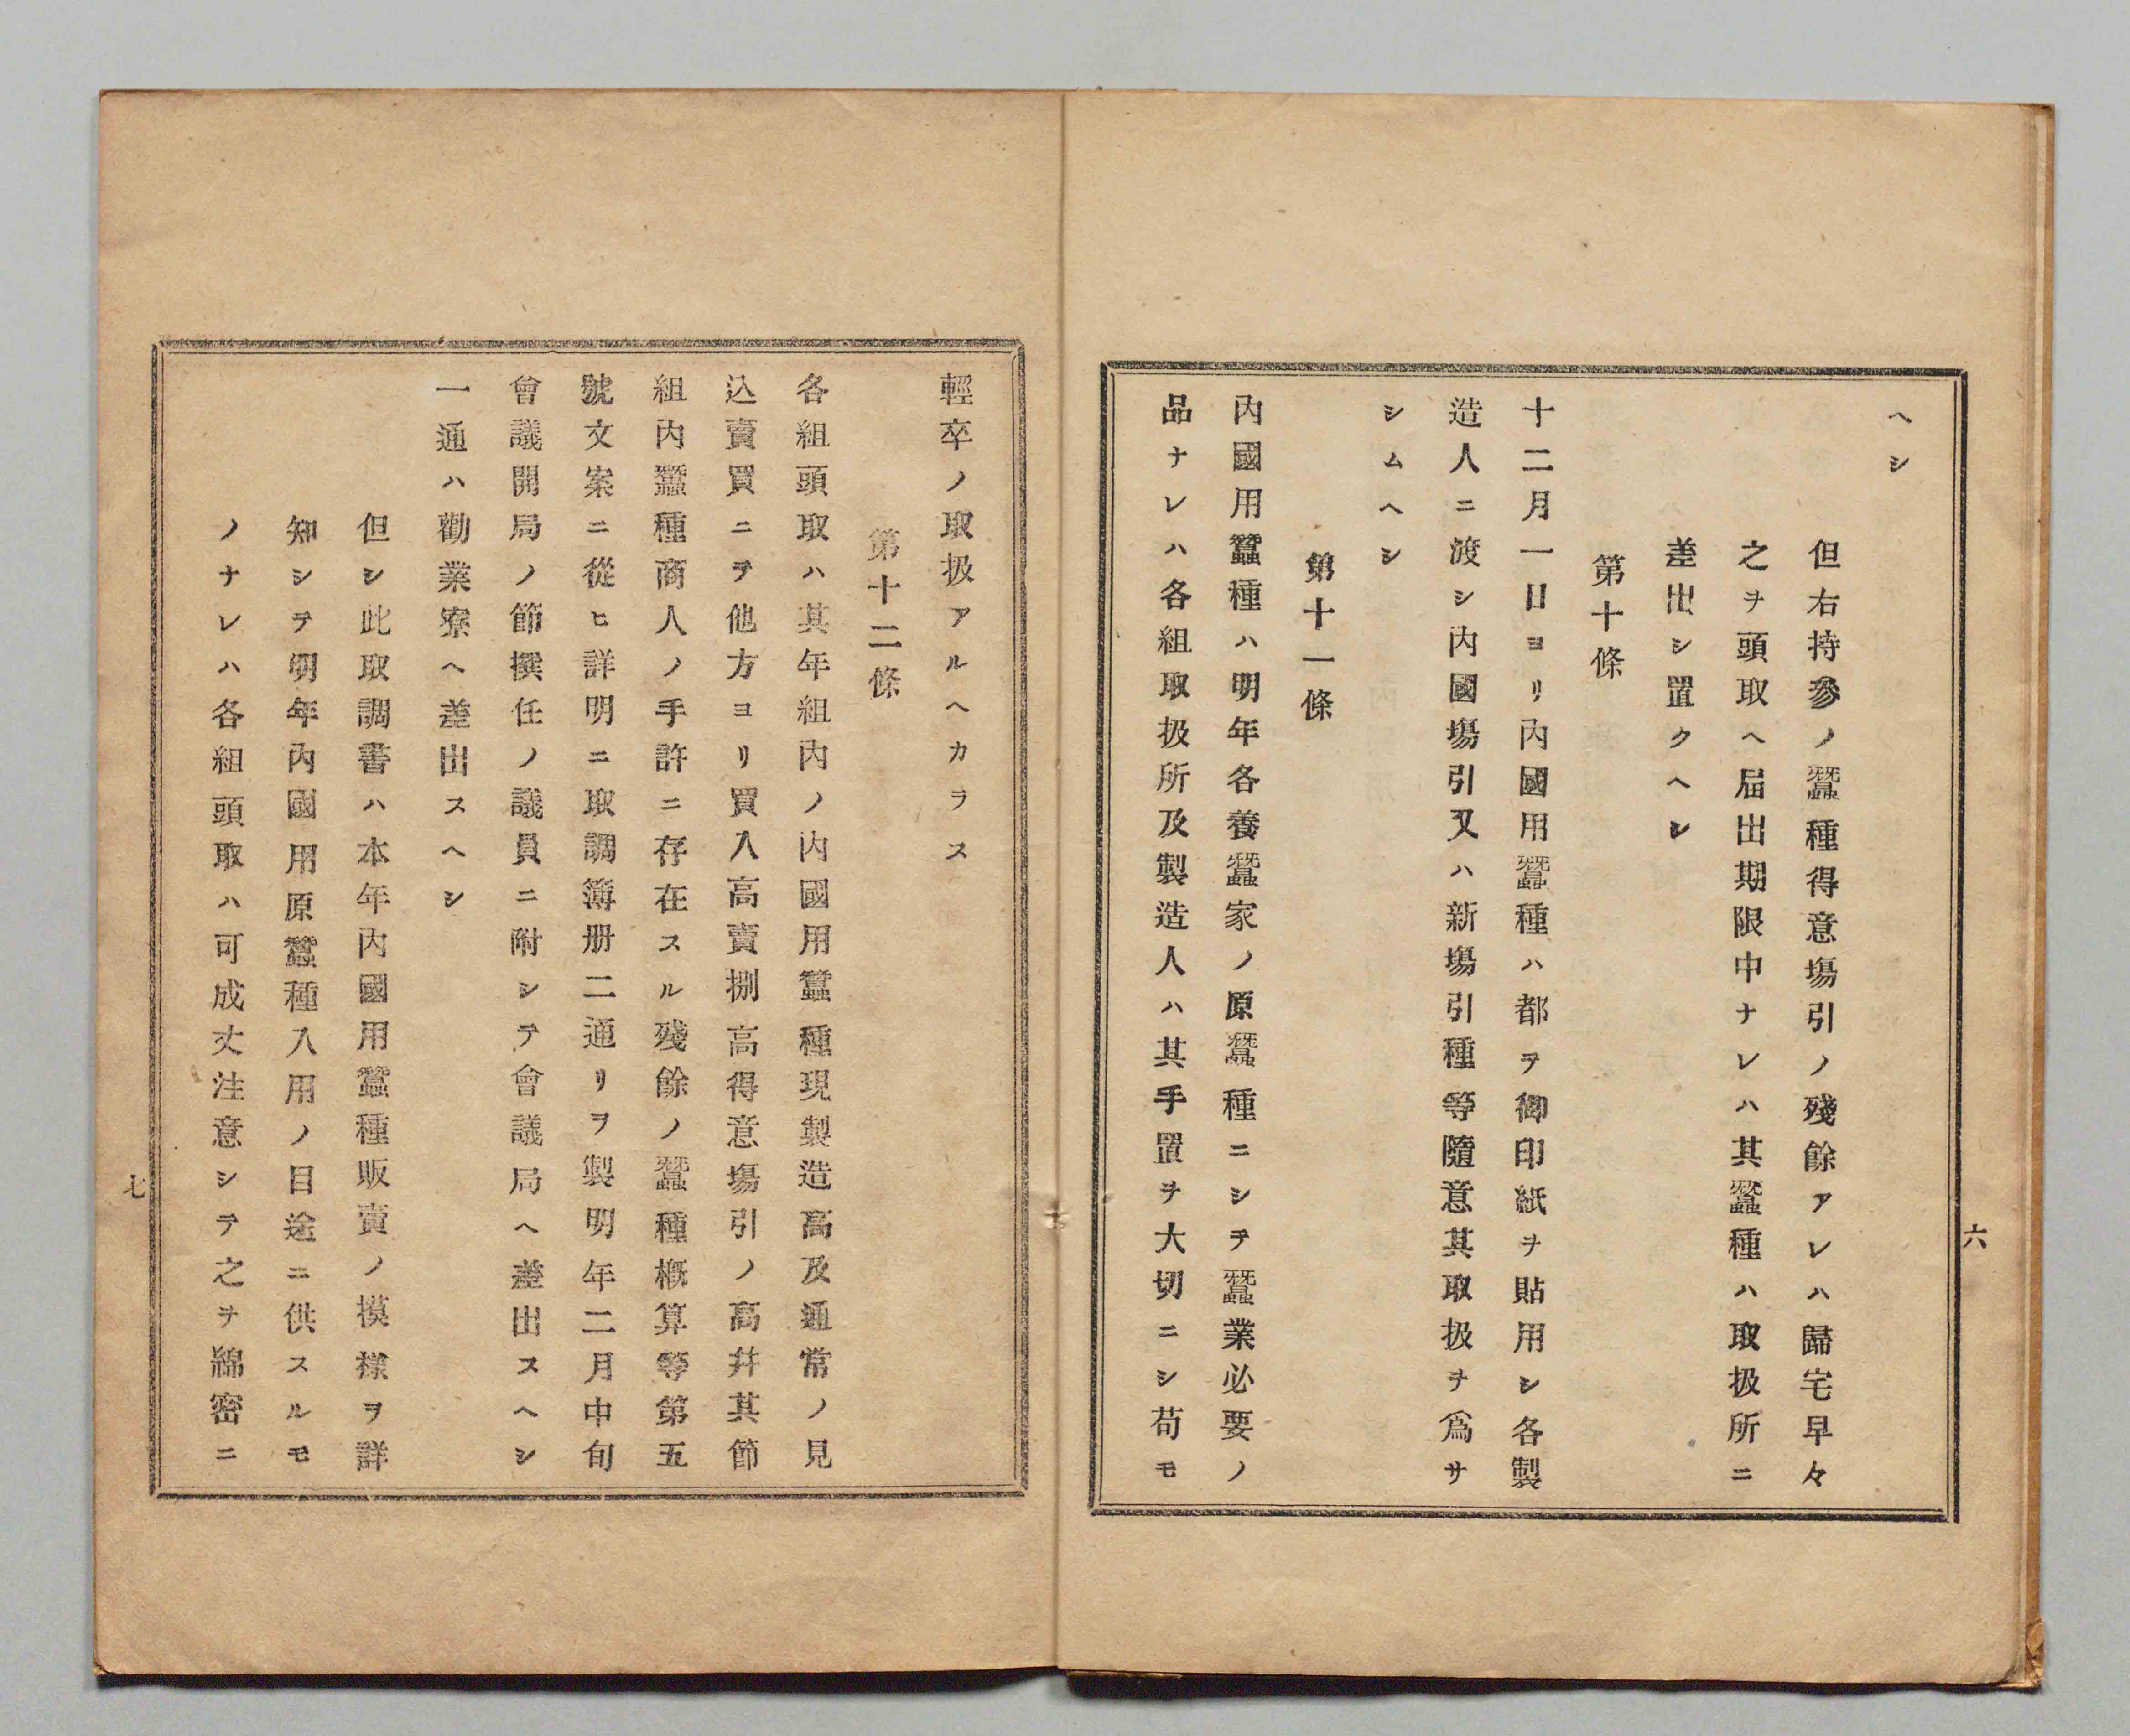 ヘシ
但右持參ノ蠶種得意塲引ノ殘餘アレハ歸宅早々
之ヲ頭取ヘ届出期限中ナレハ其蠶種ハ取扱所ニ
差出シ置クヘシ
第十條
十二月一日ヨリ內國用蠶種ハ都ヲ御印紙ヲ貼用シ各製
造人ニ渡シ內國塲引又ハ新塲引種等隨意其取扱ヲ爲サ
シムヘシ
第十一條
內國用蠶種ハ明年各養蠶家ノ原蠶種ニシテ蠶業必要ノ
品ナレハ各組取扱所及製造人ハ其手置ヲ大切ニシ苟モ
六
輕卒ノ取扱アルヘカラス
第十二條
各組頭取ハ其年組內ノ內國用蠶種現製造高及通常ノ見
込賣買ニヲ他方ヨリ買入高賣捌高得意塲引ノ高幷其節
組內蠶種商人ノ手許ニ存在スル殘餘ノ蠶種概算等第五
號文案ニ從ヒ詳明ニ取調簿册二通リヲ製明年二月中旬
會議開局ノ節撰任ノ議員ニ附シテ會議局ヘ差出スヘシ
一通ハ勸業寮ヘ差出スヘシ
但シ此取調書ハ本年內國用蠶種販賣ノ摸樣ヲ詳
知シテ明年內國用原蠶種入用ノ目途ニ供スルモ
ノナレハ各組頭取ハ可成丈注意シテ之ヲ綿密ニ
七